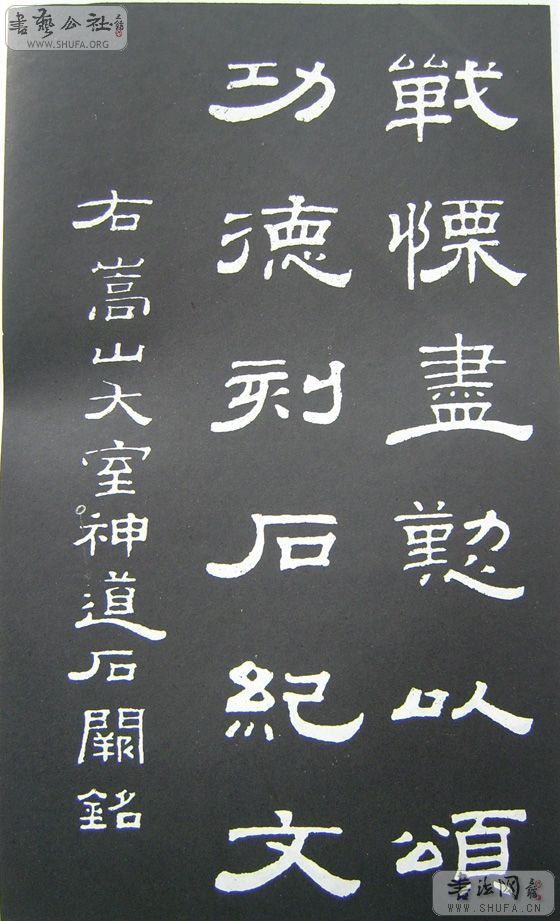 書藝公社
WWW.SHUFA.ORG
戰慄盡懃以頌
功德刻石紀文
右嵩山大室神道石闕銘
书法网
WWW.SHUFA.CN